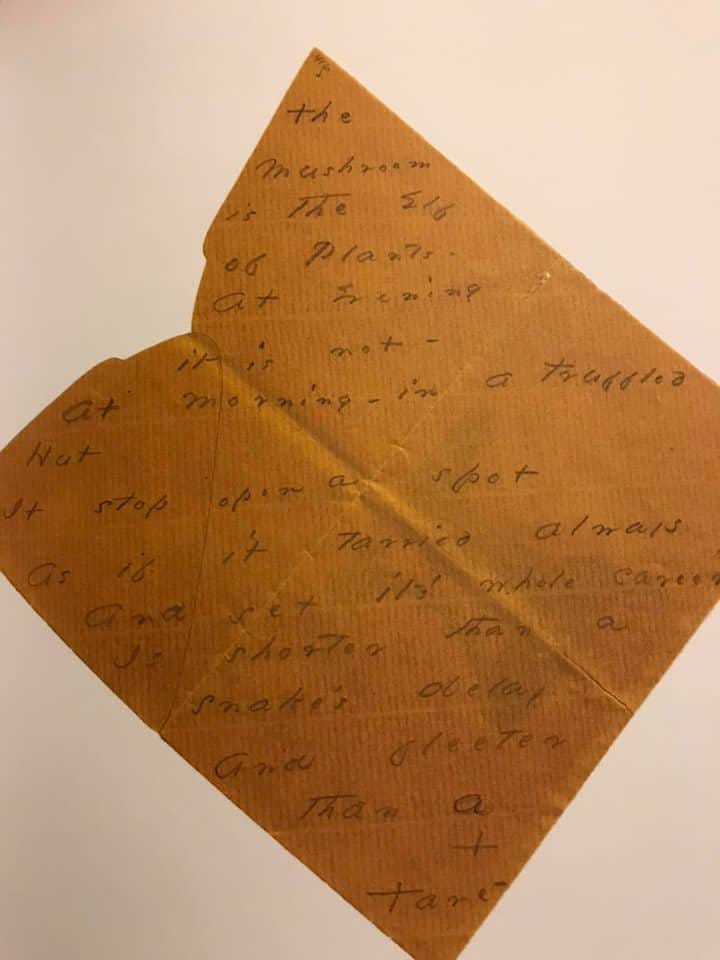 the
Mushroom
is The Elf
of Plants -
At Evening
it is not -
At morning - in a Truffled
Hut
It stop opon a spot
As if it Tarried always
And yet it's whole career
Is shorter than a
snake's delay
And fleeter
Than a
+
Tare -